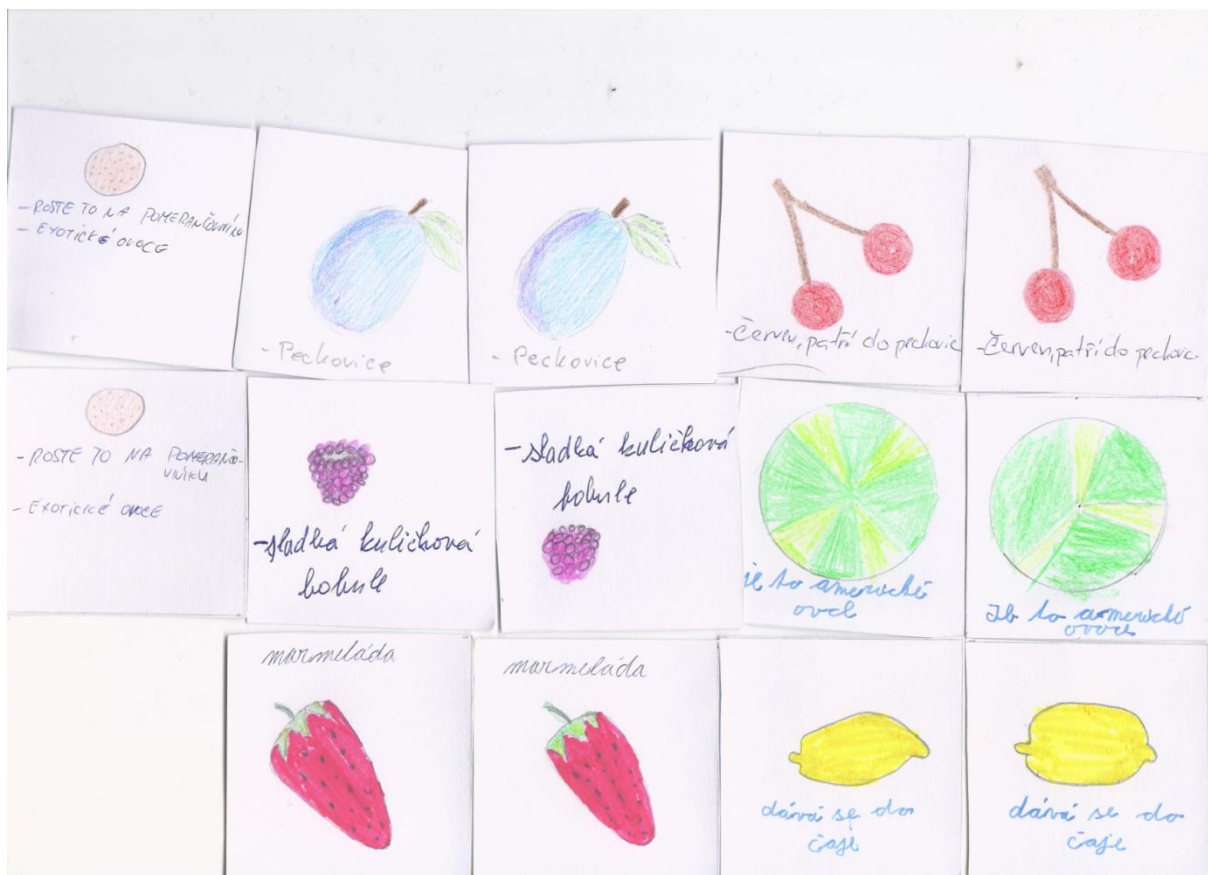 - ROSTE TO NA POMERANČOVNÍKU
- EXOTICKÉ OVOCE
- Peckovice
- Peckovice
-Červen, patří do peckovic
-Červen, patří do peckovic
- ROSTE TO NA POMERANČO-
VNÍKU
- EXOTICKÉ OVOCE
-sladká kuličková
bobule
-sladká kuličková
bobule
je to americké
ovoce
Je to americké
ovoce
marmeláda
marmeláda
dává se do
čaje
dává se do
čaje